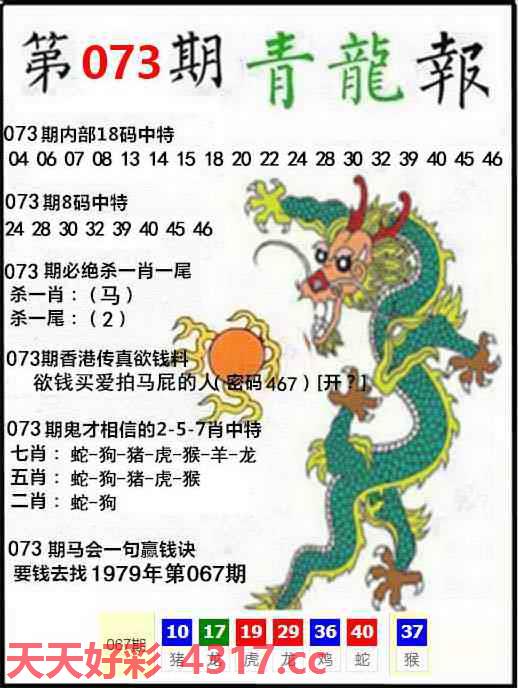 第073期青龍報
073期内部18码中特
04 06 07 08 13 14 15 18 20 22 24 28 30 32 39 40 45 46
073期8码中特
24 28 30 32 39 40 45 46
073 期必绝杀一肖一尾
杀一肖：（马）
杀一尾：（2）
073期香港传真欲钱料
欲钱买爱拍马屁的人(密码467)[开?]
073期鬼才相信的2-5-7肖中特
七肖：蛇-狗-猪-虎-猴-羊-龙
五肖：蛇-狗-猪-虎-猴
二肖：蛇-狗
073 期马会一句赢钱诀
要钱去找1979年第067期
067期 10 17 19 29 36 40 37
猪 龙 虎 龙 鸡 蛇 猴
天天好彩 4317.cc